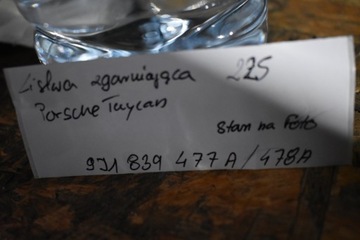 Listwa zgarniająca 225
Porsche Taycan
Stan na Foto
9J1 839 477A / 478A